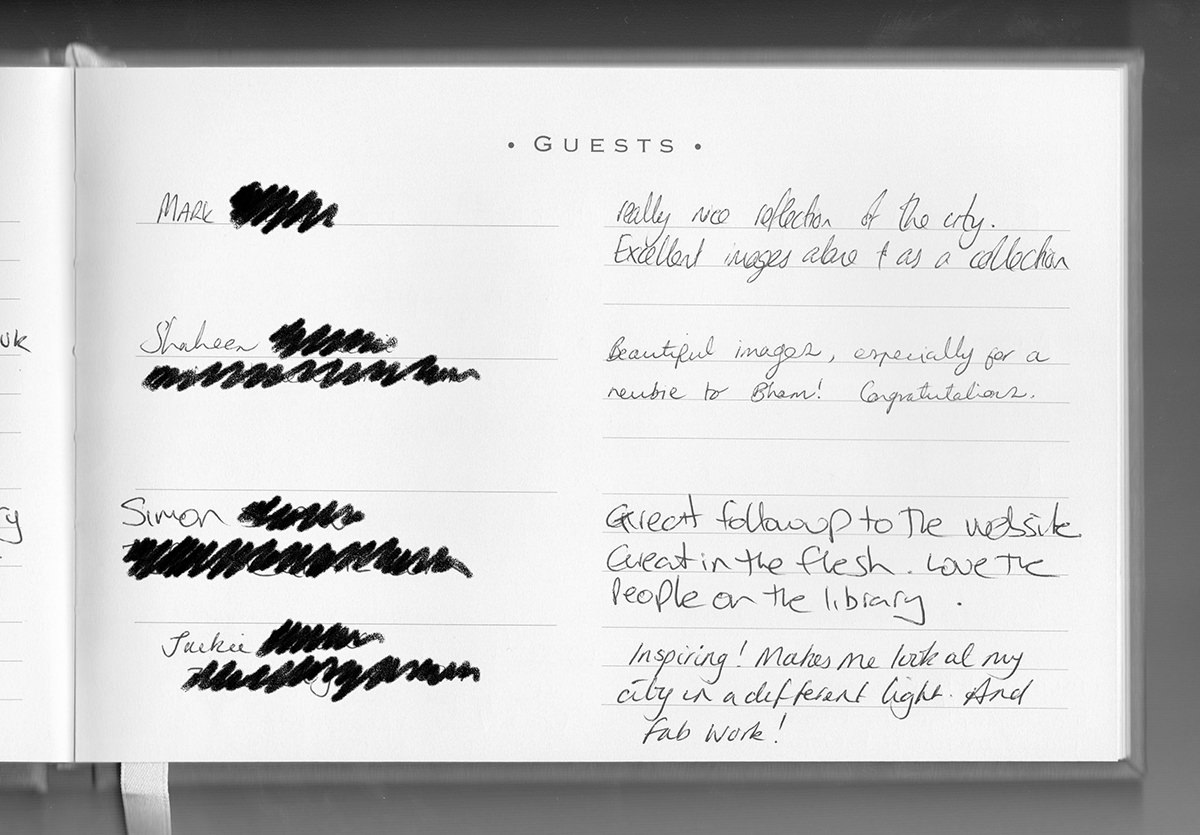 • GUESTS •
MARK
really nice reflection of the city.
Excellent images alone + as a collection
Shaheen
Beautiful images, especially for a
newbie to Bham! Congratulations.
Simon
Great followup to the website
Great in the flesh. Love the
People on the library.
Jackie
Inspiring! Makes me look at my
city in a different light. And
fab work!
uk
ry